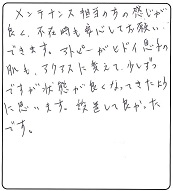 メンテナンス担当の方の感じが
良く、不在時も安心してお願い
できます。アトピーがヒドイ息子
の肌も、アクアスに変えて、少しずつ
ですが状態が良くなってきたよう
に思います。改善して良かった
です。